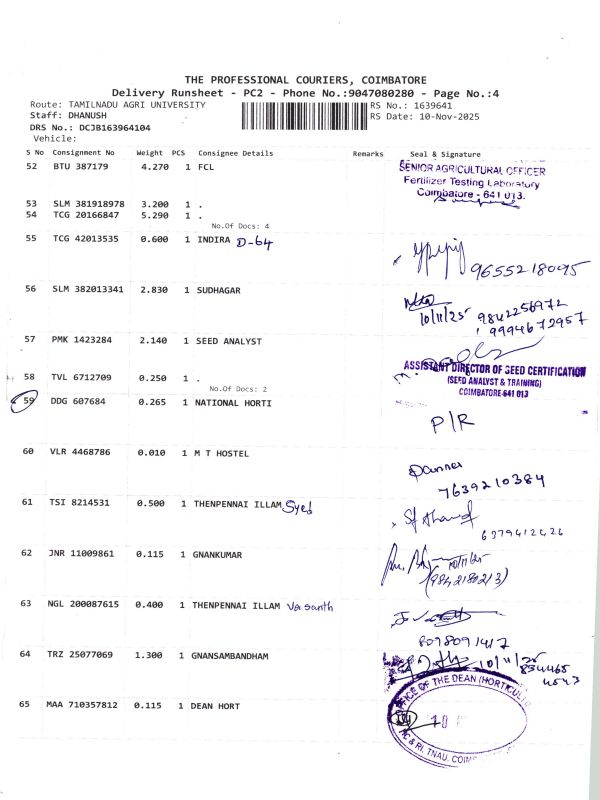 THE PROFESSIONAL COURIERS, COIMBATORE
Delivery Runsheet - PC2 - Phone No.:9047080280 - Page No.:4
Route: TAMILNADU AGRI UNIVERSITY RS No.: 1639641
Staff: DHANUSH RS Date: 10-Nov-2025
DRS No.: DCJB163964104
Vehicle:
S No Consignment No Weight PCS Consignee Details Remarks Seal & Signature
52 BTU 387179 4.270 1 FCL
SENIOR AGRICULTURAL OFFICER
Fertilizer Testing Laboratory
Coimbatore - 641 013.
53 SLM 381918978 3.200 1 .
54 TCG 20166847 5.290 1 .
No.Of Docs: 4
55 TCG 42013535 0.600 1 INDIRA D-64
9655218095
56 SLM 382013341 2.830 1 SUDHAGAR
10/11/25 9842256972
9994672957
57 PMK 1423284 2.140 1 SEED ANALYST
ASSISTANT DIRECTOR OF SEED CERTIFICATION
(SEED ANALYST & TRAINING)
COIMBATORE-641 013
58 TVL 6712709 0.250 1 .
No.Of Docs: 2
59 DDG 607684 0.265 1 NATIONAL HORTI
P/R
60 VLR 4468786 0.010 1 M T HOSTEL
7639210384
61 TSI 8214531 0.500 1 THENPENNAI ILLAM Syed
62 JNR 11009861 0.115 1 GNANKUMAR
10/11/25
63 NGL 200087615 0.400 1 THENPENNAI ILLAM Vasanth
8098091417
64 TRZ 25077069 1.300 1 GNANSAMBANDHAM
10/11/25
65 MAA 710357812 0.115 1 DEAN HORT
OFFICE OF THE DEAN (HORTICULTU
AC & RI, TNAU, COIM